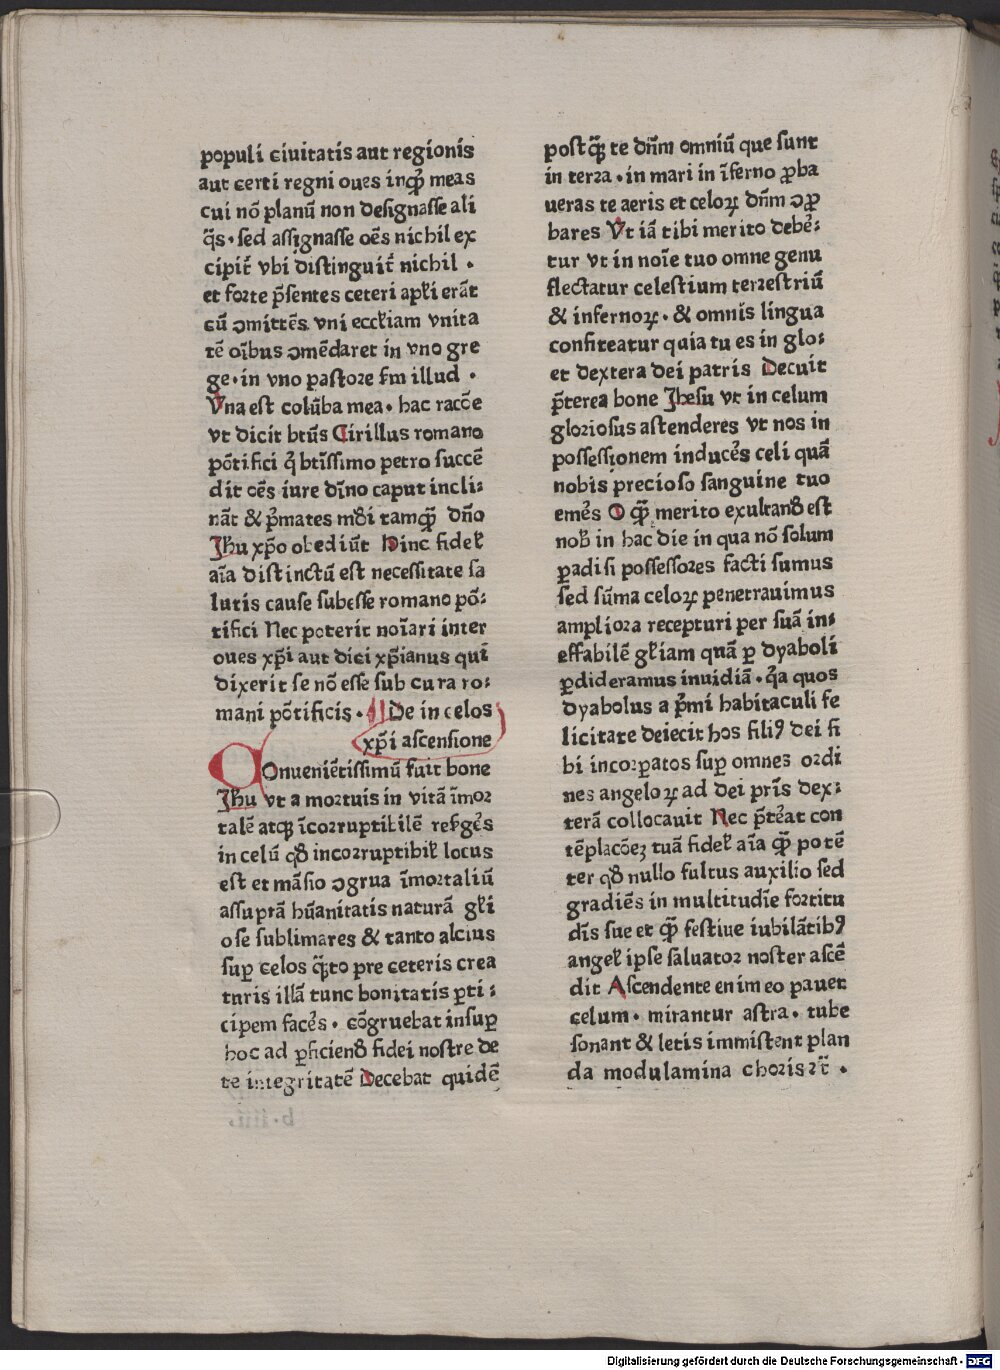 populi ciuitatis aut regionis
aut certi regni oues inqͣ meas
cui nō planū non designasse ali
q̄s · sed assignasse oēs nichil ex
cipit̄ vbi distinguit̄ nichil ·
et forte p̄sentes ceteri apłi erāt
cū ↄmittēs vni eccłiam vnita
tē oībus ↄmēdaret in vno gre
ge · in vno pastore sm illud ·
Vna est colūba mea · hac racōe
vt dicit btūs Cirillus romano
pōtifici q̇ btīssimo petro succē
dit oēs iure dīno caput incli:
nāt & p̄mates mūdi tamq̄ᷓ dn̄o
Jhu xp̄o obediūt Hinc fideł
aīa distinctū est necessitate sa
lutis cause subesse romano pō:
tifici Nec poterit noīari inter
oues xp̄i aut dici xp̄ianus qui
dixerit se nō esse sub cura ro:
mani pōtificis · De in celos
xp̄i ascensione
Conueniētissimū fuit bone
Jhu vt a mortuis in vitā īmor
talē atqꝫ īcorruptibilē resꝰgēs
in celū qđ incorruptibił locus
est et māsio ↄgrua īmortaliū
assuptā hūanitatis naturā głi
ose sublimares & tanto alcius
suꝑ celos q̄ᷓto pre ceteris crea
turis illā tunc bonitatis ꝑti:
cipem facēs · cōgruebat insuꝑ
hoc ad ꝑficienđ fidei nostre de
te integritatē Decebat quidē
postq̄ᷓ te dn̄m omniū que sunt
in terra · in mari in īferno ꝓba
ueras te aeris et celoꝝ dn̄m ↄꝓ
bares Vt iā tibi merito debē:
tur vt in noīe tuo omne genu
flectatur celestium terrestriū
& infernoꝝ · & omnis lingua
confiteatur quia tu es in glo:
et dextera dei patris Decuit
p̄terea bone Jhesu vt in celum
gloriosus astenderes vt nos in
possessionem inducēs celi quā
nobis precioso sanguine tuo
emēs O q̄ᷓ merito exultanđ est
nob̄ in hac die in qua nō solum
ꝑadisi possessores facti sumus
sed sūma celoꝝ penetrauimus
ampliora recepturi per suā in:
effabilē głiam quā ꝑ dyaboli
ꝑdideramus inuidiā · q̇a quos
dyabolus a p̄mi habitaculi fe
licitate deiecit hos filiꝰ dei si
bi incorꝑatos suꝑ omnes ordi
nes angeloꝝ ad dei pr̄is dex:
terā collocauit Nec p̄tēat con
tēplacōeꝫ tuā fideł aīa q̄ᷓ potē
ter qđ nullo fultus auxilio sed
gradiēs in multitudīe fortitu
dīs sue et q̄ᷓ festiue iubilātibꝰ
angeł ipse saluator noster ascē
dit Ascendente enim eo pauet
celum · mirantur astra · tube
sonant & letis immistent plan
da modulamina choris ꝛc̄ ·
Digitalisierung gefördert durch die Deutsche Forschungsgemeinschaft · DFG